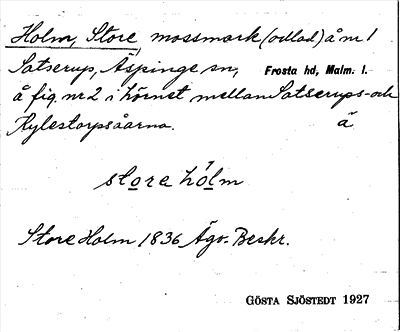 Holm, Store, mossmark (odlad) å nr 1
Satserup, Äspinge sn, Frosta hd, Malm. l.
å fig. nr 2 i hörnet mellan Satserups- och
Kylestorpsåarna. ä
store hólm
Store Holm 1836 Ägo-Beskr.
GÖSTA SJÖSTEDT 1927